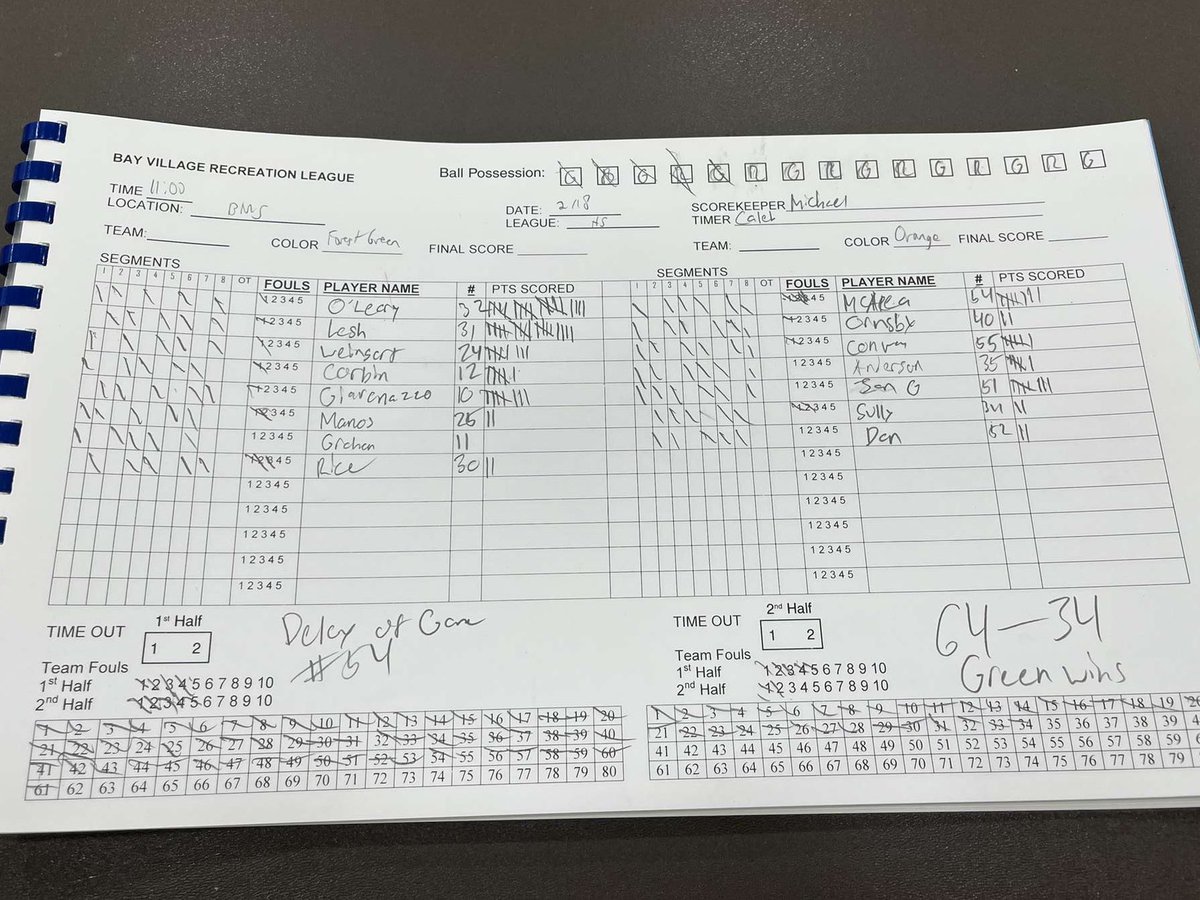 BAY VILLAGE RECREATION LEAGUE
Ball Possession: G R G R G R G R G R G R G R G
TIME 11:00
LOCATION: BMS
DATE: 2/18
LEAGUE: HS
SCOREKEEPER Michael
TIMER Caleb
TEAM:
COLOR Forest Green
FINAL SCORE
TEAM:
COLOR Orange
FINAL SCORE
SEGMENTS
1 2 3 4 5 6 7 8 OT FOULS PLAYER NAME # PTS SCORED
1 2 3 4 5 O'Leary 32
1 2 3 4 5 Lesh 31
1 2 3 4 5 24
1 2 3 4 5 Corbin 12
1 2 3 4 5 10
1 2 3 4 5 Manos 25
1 2 3 4 5 11
1 2 3 4 5 Rice 30
1 2 3 4 5
1 2 3 4 5
1 2 3 4 5
1 2 3 4 5
1 2 3 4 5
SEGMENTS
1 2 3 4 5 6 7 8 OT FOULS PLAYER NAME # PTS SCORED
1 2 3 4 5 54
1 2 3 4 5 Ormsby 40
1 2 3 4 5 55
1 2 3 4 5 Anderson 35
1 2 3 4 5 Ben G 51
1 2 3 4 5 Sully
1 2 3 4 5 Dan 52
1 2 3 4 5
1 2 3 4 5
1 2 3 4 5
1 2 3 4 5
1 2 3 4 5
1 2 3 4 5
TIME OUT
1st Half
1 2
Team Fouls
1st Half 1 2 3 4 5 6 7 8 9 10
2nd Half 1 2 3 4 5 6 7 8 9 10
Delay of Game
#54
TIME OUT
2nd Half
1 2
Team Fouls
1st Half 1 2 3 4 5 6 7 8 9 10
2nd Half 1 2 3 4 5 6 7 8 9 10
64-34
Green wins
1 2 3 4 5 6 7 8 9 10 11 12 13 14 15 16 17 18 19 20
21 22 23 24 25 26 27 28 29 30 31 32 33 34 35 36 37 38 39 40
41 42 43 44 45 46 47 48 49 50 51 52 53 54 55 56 57 58 59 60
61 62 63 64 65 66 67 68 69 70 71 72 73 74 75 76 77 78 79 80
1 2 3 4 5 6 7 8 9 10 11 12 13 14 15 16 17 18 19 20
21 22 23 24 25 26 27 28 29 30 31 32 33 34 35 36 37 38 39 4
41 42 43 44 45 46 47 48 49 50 51 52 53 54 55 56 57 58 59 6
61 62 63 64 65 66 67 68 69 70 71 72 73 74 75 76 77 78 79